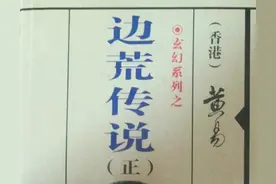 （香港）
黄易
◉玄幻系列之
边荒传说
（正）